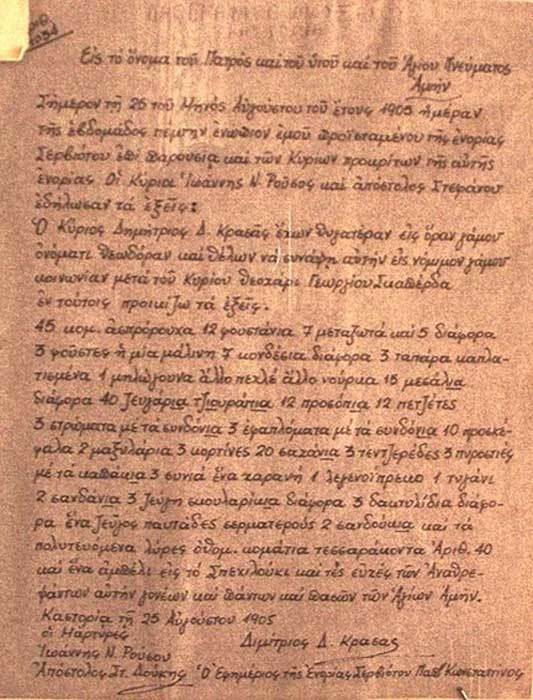 Εἰς τὸ ὄνομα τοῦ Πατρὸς καὶ τοῦ υἱοῦ καὶ τοῦ Ἁγίου Πνεύματος
Ἀμὴν
Σήμερον τῇ 25 τοῦ Μηνὸς Αὐγούστου τοῦ ἔτους 1905 ἡμέραν
τῆς ἑβδομάδος πέμπτην ἐνώπιον ἐμοῦ προϊσταμένου τῆς ἐνορίας
Σερβιότου ἐπὶ παρουσία καὶ τῶν Κυρίων προκρίτων τῆς αὐτῆς
ἐνορίας Οἱ Κύριοι Ἰωάννης Ν. Ροῦσος καὶ ἀπόστολος Στεφάνου
ἐδήλωσαν τὰ ἑξεῖς:
Ὁ Κύριος Δημήτριος Δ. Κρασᾶς ἔχων θυγατέραν εἰς ὥραν γάμου
ὀνόματι θεωδόραν καὶ θέλων νὰ συνάψη αὐτὴν εἰς νόμιμον γάμου
κοινωνίαν μετὰ τοῦ Κυρίου θεοχάρι Γεωργίου Σκαπέρδα
ἐν τούτοις προικίζω τὰ ἑξεῖς.
45 κομ. ἀσπρόρουχα 12 φουστάνια 7 μεταξωτὰ καὶ 5 διάφορα
3 φοῦστες ἡ μία μάλινη 7 κονδέσια διάφορα 3 ταπάρα καπλα-
τισμένα 1 ἄλλο πεχλὲ ἄλλο νούρκα 15 μεσάλια
διάφορα 40 ζευγάρια τζιουράπια 12 προσόπια 12 πετζέτες
3 στρώματα μὲ τὰ συνδόνια 3 ἐφαπλόματα μὲ τὰ συνδόνια 10 προσκέ-
φαλα 2 μαξιλάρια 3 κορτίνες 20 σαχάνια 3 τεντζερέδες 3 πυροστιές
μὲ τὰ καπάκια 3 συνιὰ ἕνα χαρανὴ 1 λεγενοΐπρεκο 1 τυγάνι
2 σανδάνια 3 ζεύγη σκουλαρίκια διάφορα 3 δακτυλίδια διάφο-
ρα ἕνα ζεῦγος παυτάδες σερματεροὺς 2 σανδούκια καὶ τὰ
πολυτευόμενα λύρες ὀθομ. κομάτια τεσσαράκοντα Ἀριθ. 40
καὶ ἕνα ἀμπέλι εἰς τὸ Σπεχιλούκι καὶ τὲς εὐχὲς τῶν Ἀναθρε-
ψάντων αὐτὴν γονέων καὶ πάντων καὶ πασῶν τῶν Ἁγίων Ἀμήν.
Καστορία τῇ 25 Αὐγούστου 1905
οἱ Μάρτυρες
Διμίτριος Δ. Κρασας
Ἰωάννης Ν. Ροῦσου
Ἀπόστολος Στ. Δούκης Ὁ Ἐφημέριος τῆς Ἐνορίας Σερβιότου Παπ Κωνσταντίνος